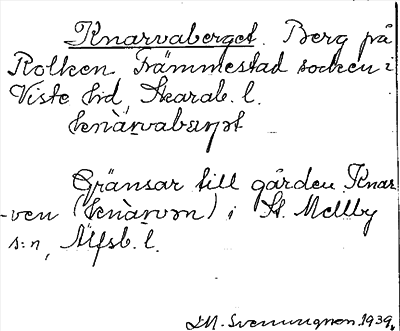 Knarvaberget. Berg på
Rolken Främmestad socken i
Viste hd, Skarab. l.
knàrvabær̡ət
Gränsar till gården Knar-
-ven (knàrvən) i St. Mellby
s:n, Älfsb. l.
J.M. Svenungson. 1939.